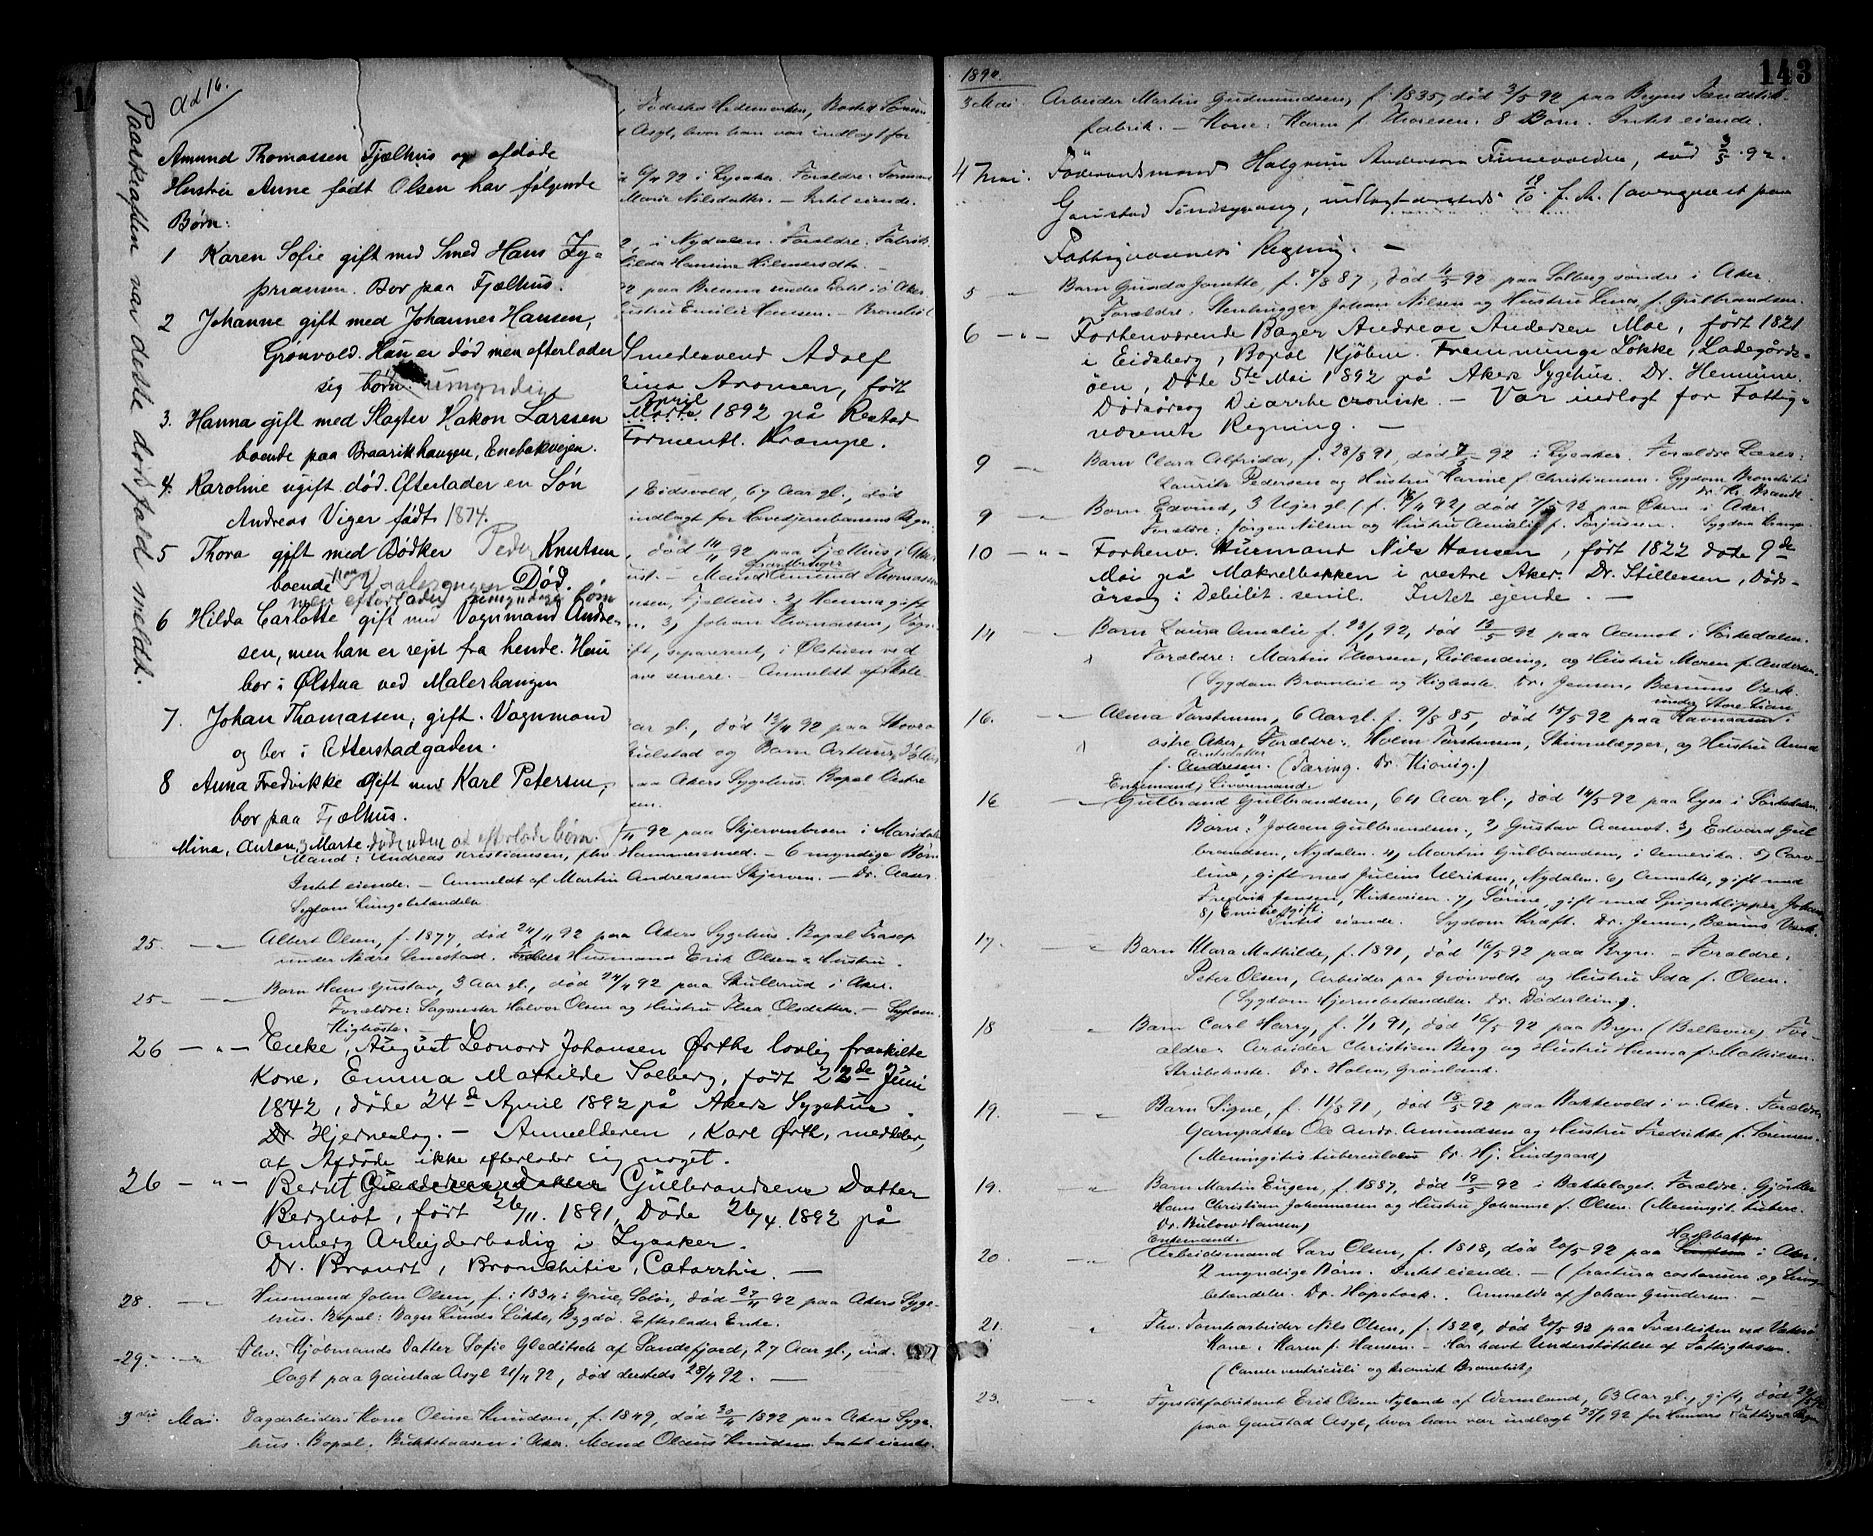 Ad 16.
Paaskriften var dette dødsfald meldt.
Amund Thomassen Fjælhus og afdøde
Hustru Anne født Olsen har følgende
Børn:
1 Karen Sofie gift med Smed Hans Zy-
prianen. Bor paa Fjælhus.
2 Johanne gift med Johannes Hansen,
Grønvold. Han er død men efterlader
sig børn. umyndig
3. Hanna gift med Slagter Hakon Larssen
boende paa Braarikhaugen, Enebakveien.
4. Karoline ugift død. Efterlader en Søn
Andreas Viger født 1874.
5 Thora gift med Bødker Peder Knutsen
boende Vaalerengen Død.
men efterlader umyndige børn
6 Hilda Carlotte gift med Vognmand Andre-
sen, men han er rejst fra hende. Hun
bor i Ølstua ved Malerhaugen
7. Johan Thomassen, gift. Vognmand
og bor i Etterstadgaden.
8 Anna Fredrikke Gift med Karl Petersen,
bor paa Fjælhus.
Mina, Anton, Marte døde uden at efterlade børn.
, Fødested Hedemarken, Bosted
Asyl, hvor han var indlagt for
92 i Lysaker. Forældre:
Marie Nilsdatter. — Intet eiende.
2, i Nydalen. Forældre: Fabrik
Hilda Hansine Hilmersdtr. —
92 paa Brenna under i Ø. Aker
Hustru Emilie Hansen. — Bronchit
Smedesvend Adolf
ina Aronsen, født
April
Marts 1892 på Rustad
Formentl. Krampe.
Eidsvold, 67 Aar gl., død
indlagt for Hovedjernbanens Regn.
, død 14/4 92 paa Fjælhus i Aker
Gaardbruger
ust. — Mand Amund Thomassen
nsen, Fjælhus. 2, Hanna gift
n. 3, Johan Thomassen, Vogn
ift, separeret, i Ølstuen ved
ave senere. — Anmeldt af
ar gl., død 13/4 92 paa
ulstad og Barn Arthur,
aa Akers Sygehus. Bopæl Østre
sen.
/4 92 paa Skjervenbroen i Maridalen
Mand: Andreas Kristiansen, fhv. Hammersmed. — 6 myndige Børn
Intet eiende. — Anmeldt af Martin Andreassen Skjerven. — Dr. Aaser.
Sygdom Lungebetændelse
25. — „ Albert Olsen, f. 1877, død 24/4 92 paa Akers Sygehus. Bopæl Trasop
under Nedre Lmestad. Husmand Erik Olsen & Hustru.
25 — „ Barn Hans Gustav, 3 Aar gl., død 24/4 92 paa Skullerud i Aker.
Forældre: Sagmester Halvor Olsen og Hustru Thea Olsdatter. — Sygdom.
Kighoste. —
26 — „ — Enke, August Leonard Johansen Ørths lovlig fraskilte
Kone, Emma Mathilde Solberg, født 22de Juni
1842, døde 24de April 1892 på Akers Sygehus.
Dr Hjerneslag. — Anmelderen, Karl Ørth, meddeler,
at Afdøde ikke efterlader sig noget.
26 — „ — Berut Gulbrandsens Datter
Berghot, født 26/11. 1891, Døde 26/4. 1892 på
Ornberg Arbejderbolig i Lysaker.
Dr. Brandt, Bronchitis, Catarrhis. —
28. — „ Husmand John Olsen, f. i 1834 i Grue, Solør, død 27/4 92 paa Akers Syge-
hus. Bopæl: Bager Lunds Løkke, Bygdø. Efterlader Enke.
29. — „ Fhv. Kjøbmands Datter Sofie Gleditsch af Sandefjord, 27 Aar gl., ind-
lagt paa Gaustad Asyl 21/4 92, død dersteds 28/4 92. —
3die Mai. Dagarbeiders Kone Oline Knudsen, f. 1849, død 30/4 1892 paa Akers Syge-
hus. Bopæl. Bukkstaasen i Aker. Mand Olaus Knudsen. Intet eiende.
1892. 143
3 Mai. Arbeider Martin Gudmundsen, f. 1835, død 3/5 92 paa Bryns Tændstik-
fabrik. — Kone: Karen f. Thoresen. 8 Børn. Intet eiende.
4 Mai. Føderaadsmand Halgrim Andersen Finnevolden, død 3/5. 92.
Gaustad Sindsygeasyl, indlagt dersteds 19/10 f. A. (avengværet paa
Fattigvæsenets Regning. —
5 — Barn Gunda Jonette, f. 8/8 87, død 4/5 92 paa Solberg søndre i Aker.
Forældre: Stenhugger Johan Nilsen og Hustru Lina f. Gulbrandsen.
6 — „ — Forhenværende Bager Andreas Andersen Moe, født 1821
i Eidsberg, Bopæl Kjøbm. Flemmings Løkke, Ladegårds-
øen, Døde 5te Mai 1892 på Akers Sygehus. Dr. Hemminc.
Dødsårsag Diarrhe cronisk. — Var indlagt for Fattig-
væsenets Regning. —
9 — „ Barn Clara Alfrida, f. 28/8 91, død 7/5 92 i Lysaker. Forældre Læser:
Laurits Pedersen og Hustru Karine f. Christiansen. Sygdom Bronchitis
Dr. Kr. Brandt.
9 — „ Barn Edvind, 3 Uger gl (f. 18/4 92, død 7/5 92 paa Økern i Aker
Forældre: Jørgen Nilsen og Hustru Amalie f. Torjussen. Sygdom Krampe
10 — „ — Forhenv. Murmand Nils Hansen, født 1822 døde 9de
Mai på Makrelbekken i vestre Aker. Dr. Stillesen, Døds-
årsag: Debilit. senil. Intet ejende. —
14 — „ Barn Laura Amalie f. 23/1 92, død 13/5 92 paa Aamot i Sørkedalen.
Forældre: Martin Thorsen, Leilænding, og Hustru Maren f. Andersen
(Sygdom Bronchit og Kighoste. Dr. Jensen, Bærums Værk.
under Store Lian
16. — „ Alma Torstensen, 6 Aar gl. f. 9/8 85, død 15/5 92 paa Ravnaasen i
østre Aker. Forældre: Holm Torstensen, Skinnelægger, og Hustru Anna
Antsdatter
f. Andresen. (Tæring. Dr. Kiønig.)
Enkemand, Livøremand.
16 — Gulbrand Gulbrandsen, 64 Aar gl., død 14/5 92 paa Lysa i Sørkedalen.
Børn: 1, Johan Gulbrandsen, 2, Gustav Aamot. 3, Edvard Gul-
brandsen, Nydalen. 4, Martin Gulbrandsen, i Amerika. 5, Caro-
line, gift med Julius Ulriksen, Nydalen. 6, Annette, gift med
Fredrik Jensen, Kirkeveien. 7, Sørine, gift med Spigerklipper Johan
8, Emilie, ugift.
Intet eiende. Sygdom Kræft. Dr. Jensen, Bærums Værk.
17. — „ Barn Klara Mathilde, f. 1891, død 16/5 92 paa Bryn. — Forældre:
Peter Olsen, Arbeider paa Grønvold, og Hustru Ida f. Olsen.
(Sygdom Hjernebetændelse. Dr. Døderlein).
18 „ Barn Carl Harry, f. 1/1 91, død 16/5 92 paa Bryn (Bellevue) For-
ældre: Arbeider Christian Berg og Hustru Hanna f. Mathisen.
Strubehoste. Dr. Holm, Grønland.
19. — „ Barn Signe, f. 11/8 91, død 18/5 92 paa Bakkevold i v. Aker. Forældre
Garnpakker Ole Andr. Amundsen og Hustru Fredrikke f. Sørensen.
(Meningitis tuberculosu Dr. Hj. Lindgaard)
19. — „ Barn Martin Eugen, f. 1887, død 19/5 92 i Bækkelaget. Forældre: Gjørtler
Hans Christian Johannesen og Hustru Johanne f. Olsen. (Meningit. tuberc.
Dr. Bülow Hansen)
Enkemand. Haslebakken
20 — „ Arbeidsmand Lars Olsen, f. 1818, død 20/5 92 paa i Aker.
2 myndige Børn. Intet eiende. — (fractura costarum og Lunge-
betændelse. Dr. Hapstock. Anmeldt af Johan Gundersen. —
21. „ Fhv. Tomtearbeider Nils Olsen, f. 1820, død 20/5 92 paa Tværleiken ved Vækerø
Kone: Karen f. Hansen. — Har havt Understøttelse af Fattigkassen.
(Cancer ventriculi og kronisk Bronchit)
23. — „ Fyrstikfabrikant Erik Olsen Nyland af Wermland, 63 Aar gl., gift, død 22/5 92
paa Gaustad Asyl, hvor han var indlagt 25/1 92 for Hamars Fattigv. Regn